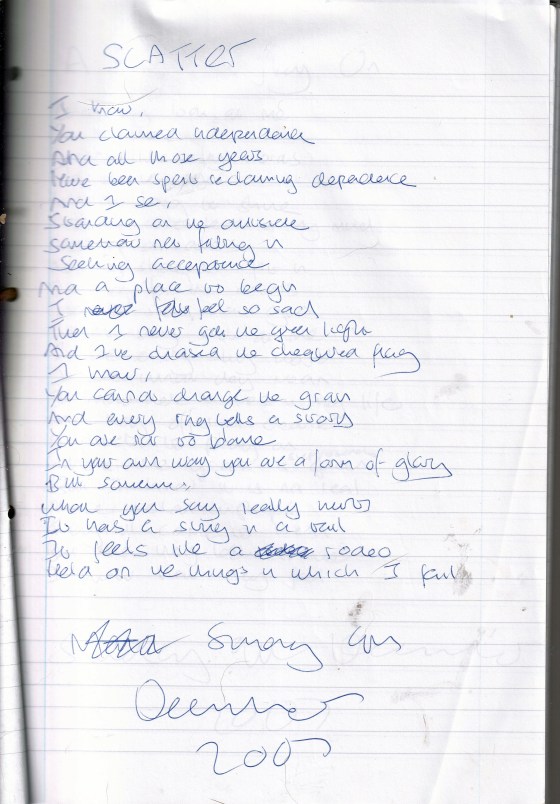 SCATTER
I know,
You claimed independence
And all those years
Have been spent reclaiming dependence
And I see,
Standing on the outside
Somehow not fitting in
Seeking acceptance
And a place to begin
I feel so sad
That I never got the green light
And I've chased the chequered flag
I know,
You cannot change the grain
And every ring tells a story
You are not to blame
In your own way you are a form of glory
But sometimes
What you say really hurts
It has a sting in a tail
It feels like a rodeo
Held on the things in which I fail
December
2005